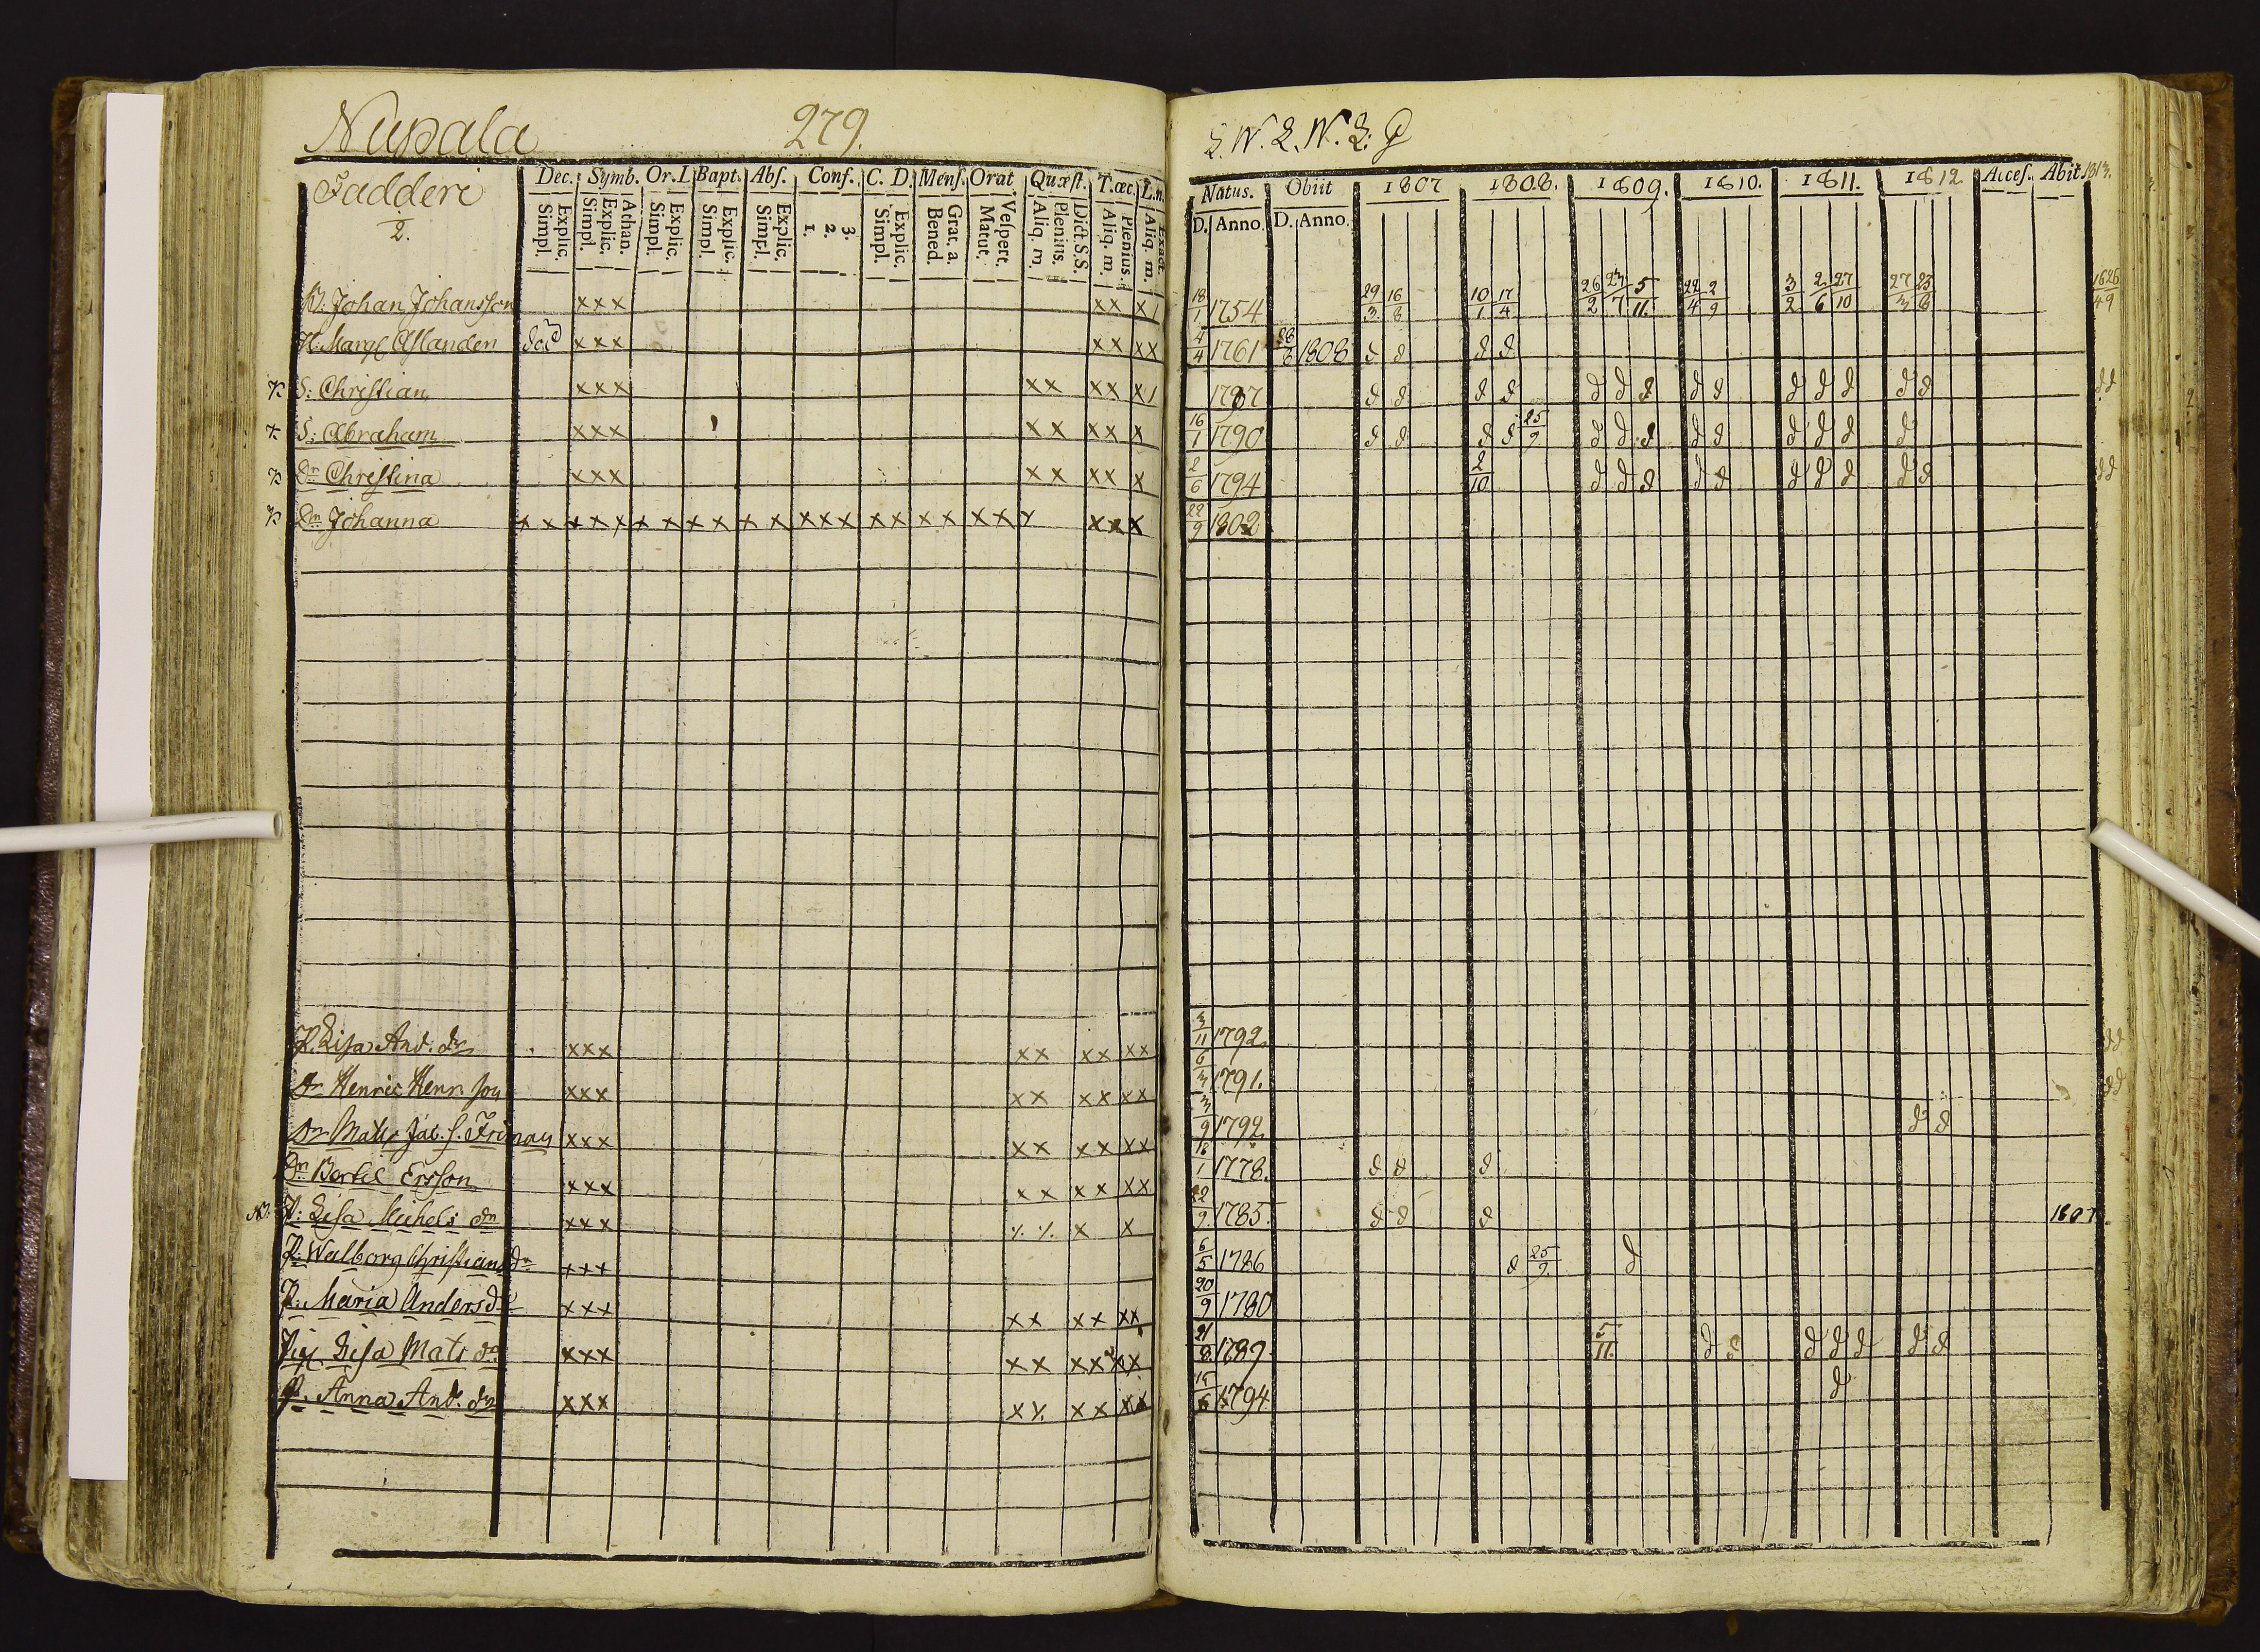 Nupala 279.
Fadderi
2.
Dec. Symb. Or. D. Bapt. Abs. Conf. C. D. Mens. Orat. Quæst. T. œc. L.n.
Explic. Simpl. Athan. Explic. Simpl. Explic. Simpl. Explic. Simpl. Explic. Simpl. 3. 2. 1. Explic. Simpl. Grat. a. Bened. Vespert. Matut. Dict. S.S. Plenius. Aliq. m. Plenius. Aliq. m. Exact. Aliq. m.
Johan Johansson xxx xx x/
H. Marg. Aslanden xxx xx xx
S: Christian xxx xx xx x/
S: Abraham xxx xx xx x
Dr Christina xxx xx xx x
Dr Johanna x x x x x x x x x x x x x x x x x x x x x x x x
P. Lisa And. dr xxx xx xx xx
Dr Henric Henr. son xxx xx xx xx
Dr Mats Jac. s. Friman xxx xx xx xx
Dr Bertil Ersson xxx xx xx xx
P: Lisa Michels dr xxx x x
P. Walborg Christians dr xxx
P. Maria Anders dr xxx xx xx xx
Pig Lisa Mats dr xxx xx xx xx
P. Anna And. dr xxx xx xx xx
Natus. Obiit 1807 1808. 1809. 1810. 1811. 1812 Acces. Abit 1813.
D. Anno. D. Anno.
18/1 1754 29/3 16/8 10/1 17/4 26/2 23/7 5/11 22/4 2/9 3/2 2/6 27/10 27/3 23/8 16/4 26/9
4/4 1761 1808 d d d d
1787 d d d d d d d d d d d d d d d d
16/1 1790 d d d d 25/9 d d d d d d d d d
2/6 1794 2/10 d d d d d d d d d d d d
22/9 1802
3/11 1792 d d
6/3 1791. d d
3/9 1792 d d
16/1 1778. d d d
22/9 1785. d d d 1807.
6/5 1786 d 25/9. d
20/9 1780
21/8 1789 5/11. d d d d d d d
15/6 1794 d